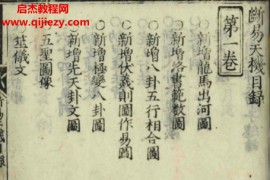 启杰教育网
www.qijiejy.com
斷易天機目録
第一卷
新增龍馬出河圖
新增
新增八卦五行相合圖
新增伏羲則圖作易圖
新增極變八卦圖
新增先天卦文圖
五聖圖像
筮儀文